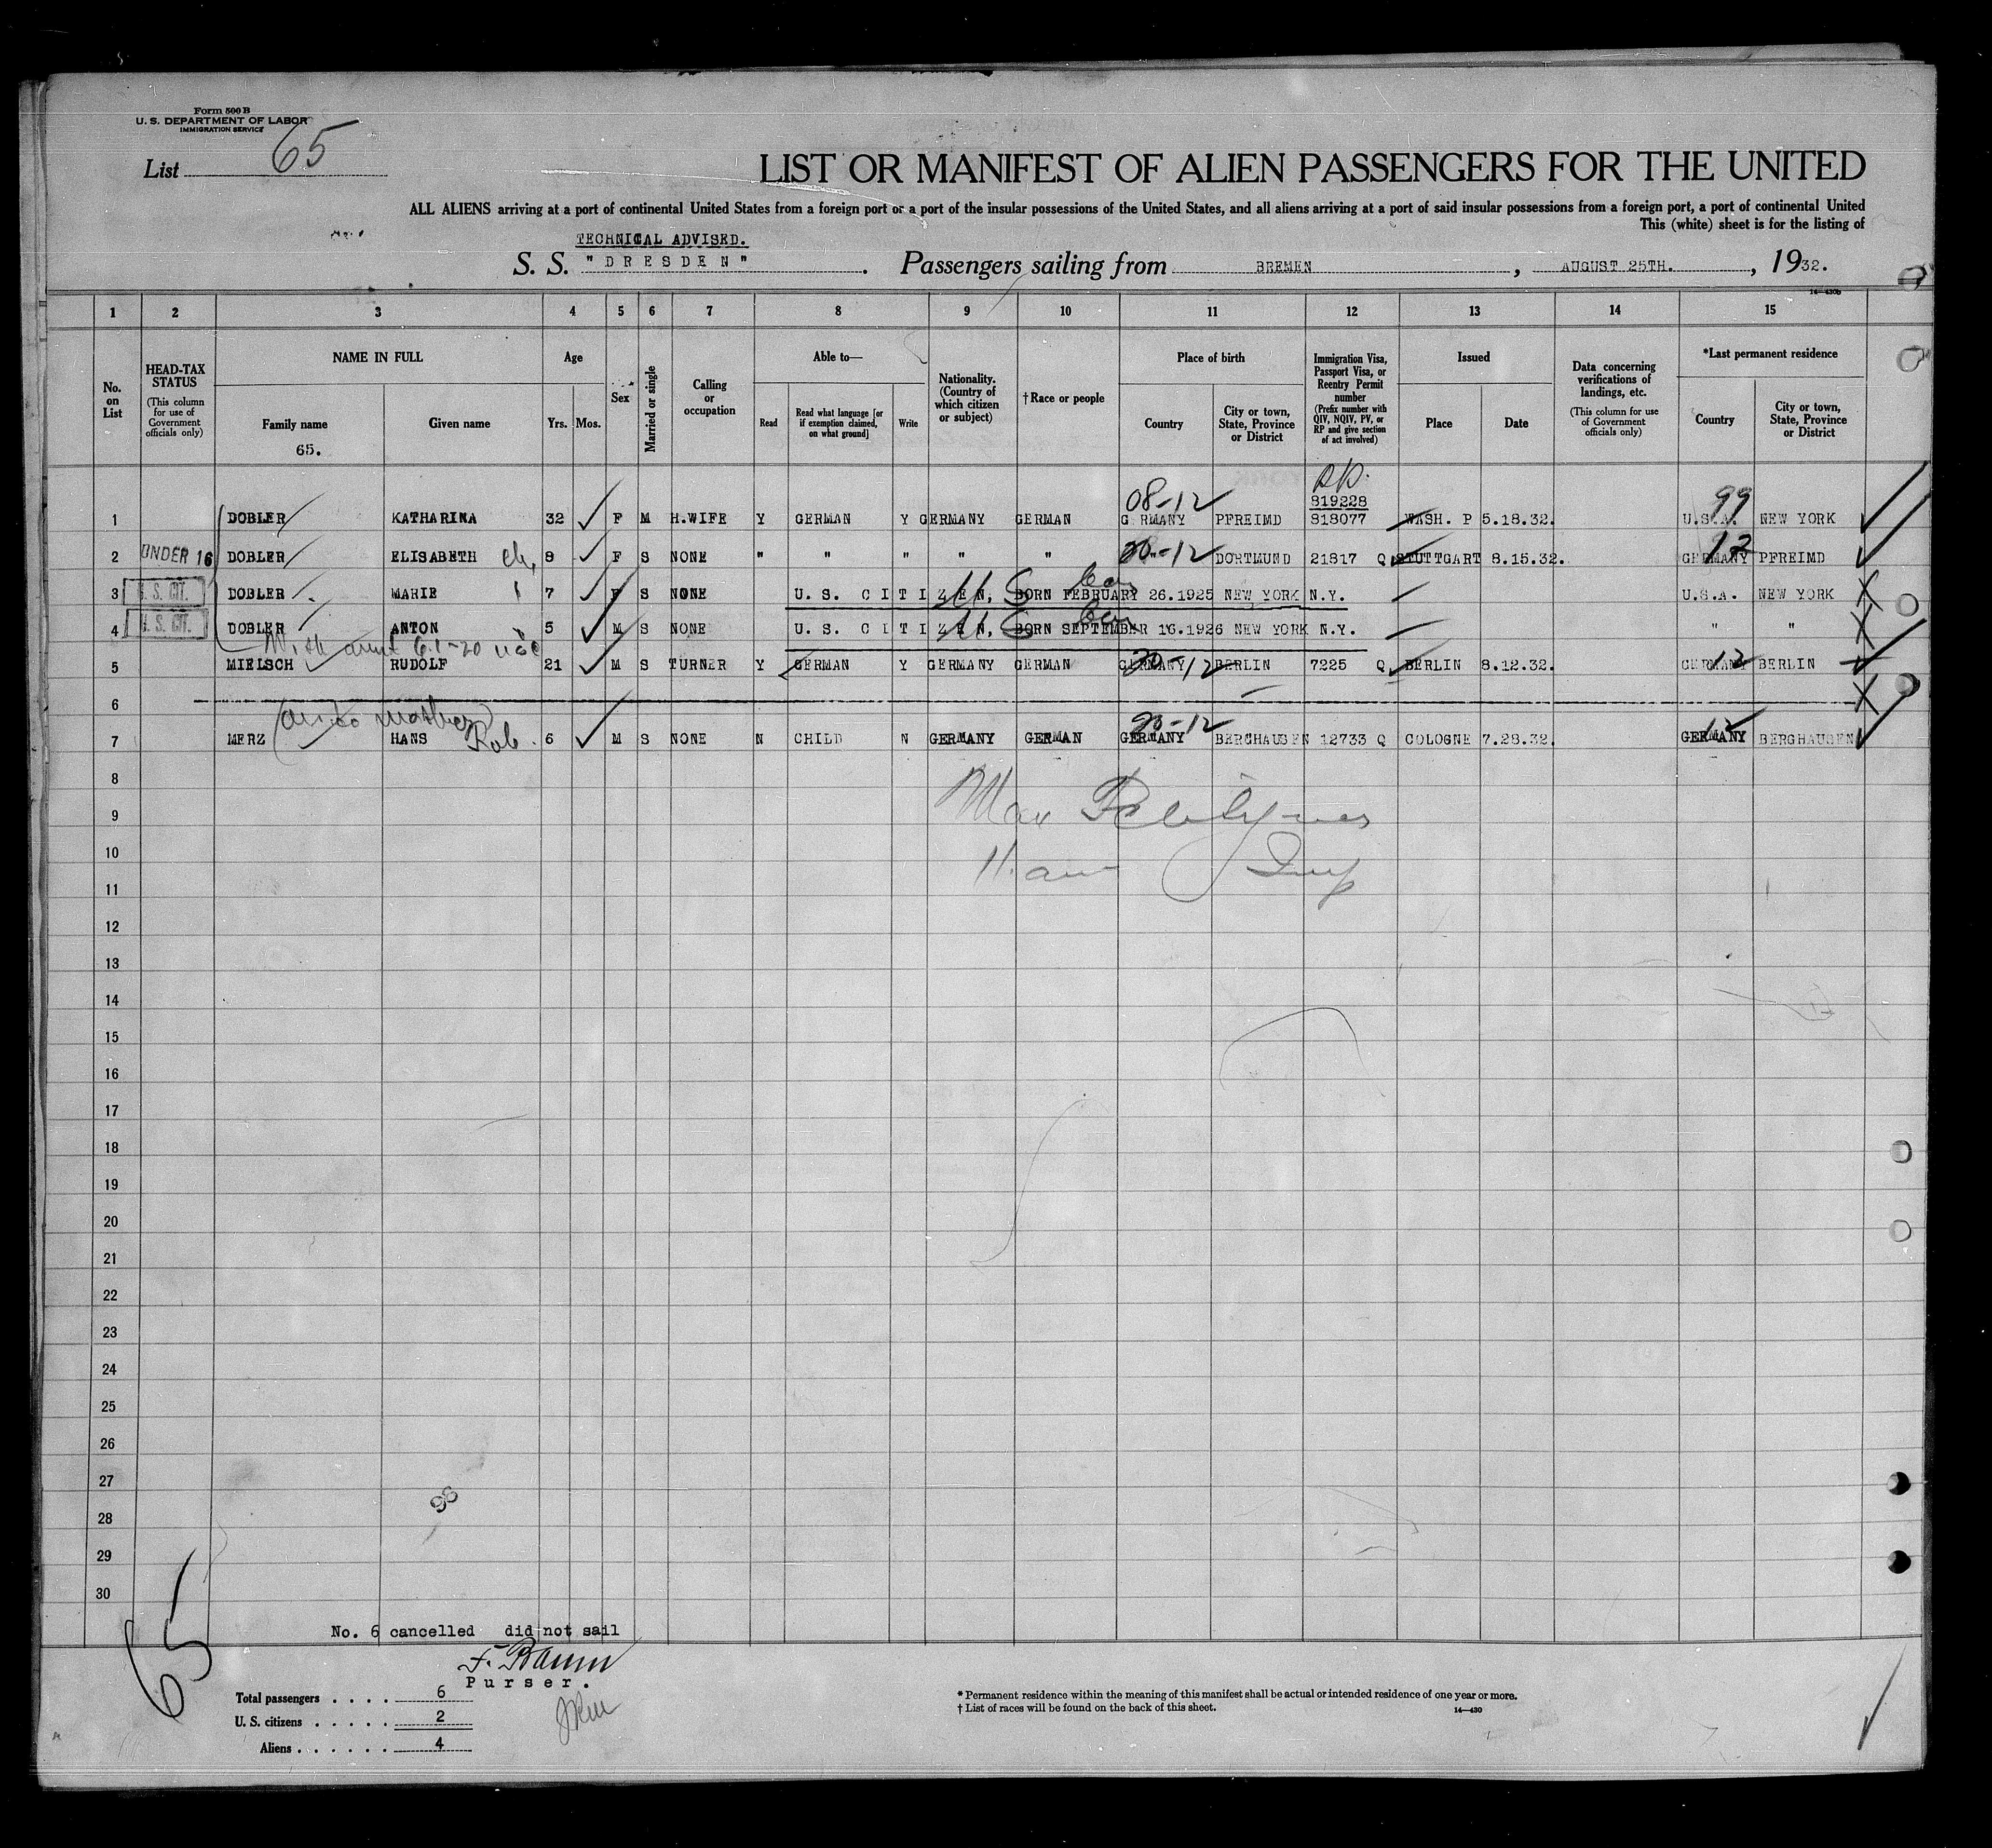 Form 500 B
U. S. DEPARTMENT OF LABOR
IMMIGRATION SERVICE
List 65
LIST OR MANIFEST OF ALIEN PASSENGERS FOR THE UNITED
ALL ALIENS arriving at a port of continental United States from a foreign port or a port of the insular possessions of the United States, and all aliens arriving at a port of said insular possessions from a foreign port, a port of continental United
This (white) sheet is for the listing of
TECHNICAL ADVISED.
S. S. "DRESDEN". Passengers sailing from BREMEN, AUGUST 25TH., 1932.
14—430b
1 2 3 4 5 6 7 8 9 10 11 12 13 14 15
No. on List
HEAD-TAX STATUS (This column for use of Government officials only)
NAME IN FULL
Family name
65.
Given name
Age
Yrs. Mos.
Sex
Married or single
Calling or occupation
Able to—
Read
Read what language [or if exemption claimed, on what ground]
Write
Nationality. (Country of which citizen or subject)
†Race or people
Place of birth
Country
City or town, State, Province or District
Immigration Visa, Passport Visa, or Reentry Permit number (Prefix number with QIV, NQIV, PV, or RP and give section of act involved)
Issued
Place
Date
Data concerning verifications of landings, etc. (This column for use of Government officials only)
*Last permanent residence
Country
City or town, State, Province or District
08-12 819228 99
1 DOBLER KATHARINA 32 F M H.WIFE Y GERMAN Y GERMANY GERMAN G RMANY PFREIMD 818077 WASH. P 5.18.32. U.S.A. NEW YORK
2 UNDER 16 DOBLER ELISABETH 8 F S NONE " " " " " 20-12 DORTMUND 21817 Q STUTTGART 8.15.32. GERMANY 12 PFREIMD
3 U. S. CIT. DOBLER MARIE 7 F S NONE U. S. CITIZEN, BORN FEBRUARY 26.1925 NEW YORK N.Y. U.S.A. NEW YORK
4 U. S. CIT. DOBLER ANTON 5 M S NONE U. S. CITIZEN, BORN SEPTEMBER 16.1926 NEW YORK N.Y. " "
With aunt
5 MIELSCH RUDOLF 21 M S TURNER Y GERMAN Y GERMANY GERMAN GERMANY 20-12 BERLIN 7225 Q BERLIN 8.12.32. GERMANY 12 BERLIN
6
mother
7 MERZ HANS Rob. 6 M S NONE N CHILD N GERMANY GERMAN GERMANY 20-12 BERGHAUSEN 12733 Q COLOGNE 7.28.32. GERMANY 12 BERGHAUSEN
8
Max
9
10
Insp
11
12
13
14
15
16
17
18
19
20
21
22
23
24
25
26
27
98
28
29
30
65
No. 6 cancelled did not sail
F. Baum
Purser.
Total passengers . . . . 6
U. S. citizens . . . . . 2
Aliens . . . . . . 4
* Permanent residence within the meaning of this manifest shall be actual or intended residence of one year or more.
† List of races will be found on the back of this sheet.
14—430